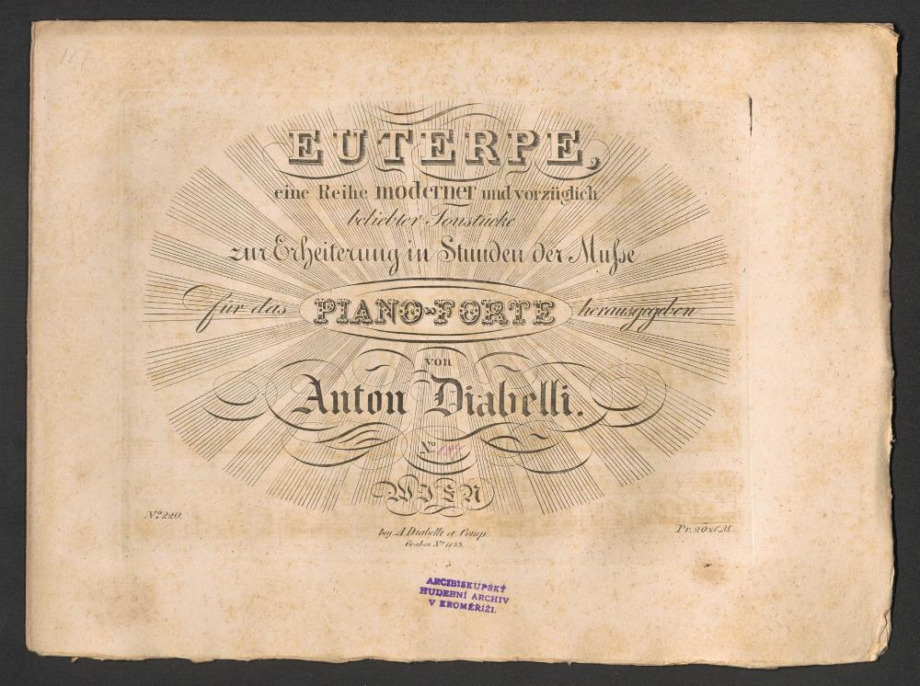 EUTERPE,
eine Reihe moderner und vorzüglich
beliebter Tonstücke
zur Erheiterung in Stunden der Muſse
für das PIANO-FORTE herausgegeben
von
Anton Diabelli.
No
WIEN
No 220.
bey A. Diabelli et Comp.
Graben No 1133.
ARCIBISKUPSKÝ
HUDEBNÍ ARCHIV
V KROMĚŘÍŽI.